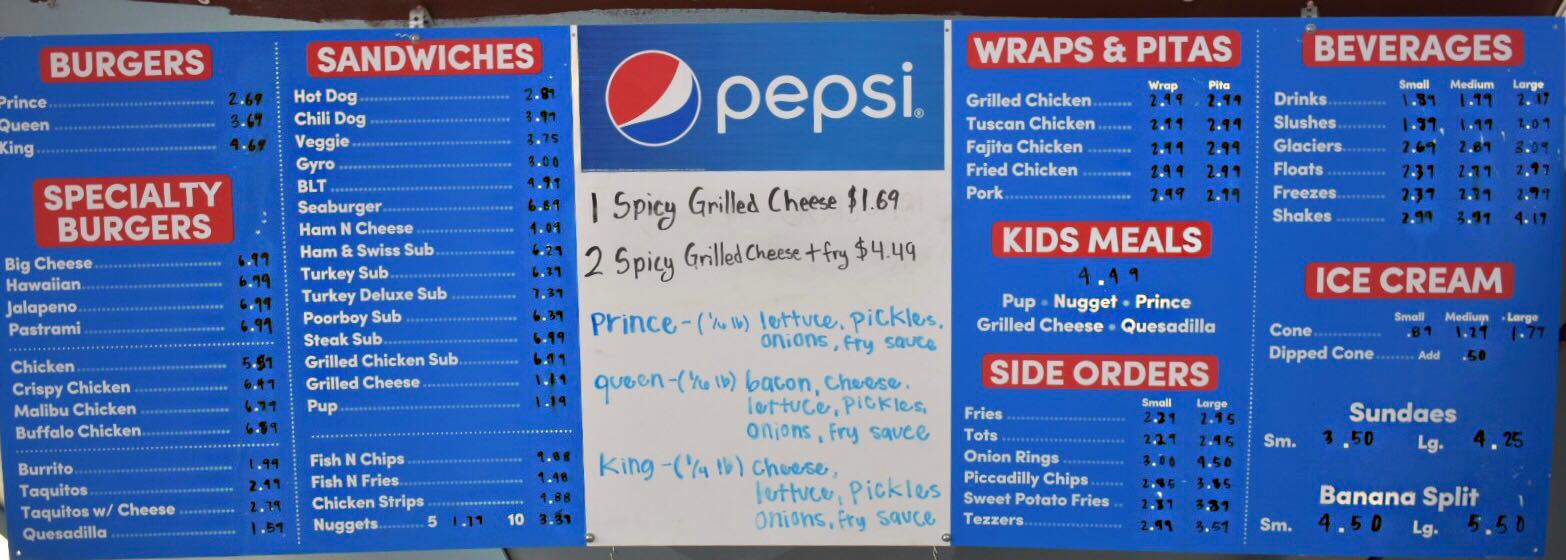 BURGERS
Prince 2.69
Queen 3.69
King 4.69
SPECIALTY
BURGERS
Big Cheese 6.99
Hawaiian 6.99
Jalapeno 6.99
Pastrami 6.99
Chicken
Crispy Chicken 6.49
Malibu Chicken 6.79
Buffalo Chicken 6.89
Burrito 1.99
Taquitos 2.49
Taquitos w/ Cheese 2.79
Quesadilla 1.59
SANDWICHES
Hot Dog 2.89
Chili Dog 3.99
Veggie 3.75
Gyro 3.00
BLT 4.99
Seaburger 6.89
Ham N Cheese 4.09
Ham & Swiss Sub 6.29
Turkey Sub 6.39
Turkey Deluxe Sub 7.39
Poorboy Sub 6.39
Steak Sub 6.99
Grilled Chicken Sub 6.99
Grilled Cheese
Pup
Fish N Chips
Fish N Fries
Chicken Strips
Nuggets 5 10
pepsi
1 Spicy Grilled Cheese $1.69
2 Spicy Grilled Cheese + fry $4.49
Prince - lettuce, Pickles,
onions, fry sauce
queen - bacon, cheese.
lettuce, Pickles,
onions, fry sauce
King - (1/4 lb) cheese,
lettuce, Pickles
onions, fry sauce
WRAPS & PITAS
Wrap Pita
Grilled Chicken 2.99 2.99
Tuscan Chicken 2.99 2.99
Fajita Chicken 2.99 2.99
Fried Chicken 2.99 2.99
Pork 2.99 2.99
KIDS MEALS
4.49
Pup • Nugget • Prince
Grilled Cheese • Quesadilla
SIDE ORDERS
Small Large
Fries
Tots
Onion Rings 3.00 4.50
Piccadilly Chips
Sweet Potato Fries
Tezzers
BEVERAGES
Small Medium Large
Drinks
Slushes
Glaciers 2.69 2.89 3.09
Floats
Freezes
Shakes
ICE CREAM
Small Medium Large
Cone .89 1.29 1.77
Dipped Cone Add .50
Sundaes
Sm. 3.50 Lg. 4.25
Banana Split
Sm. 4.50 Lg. 5.50